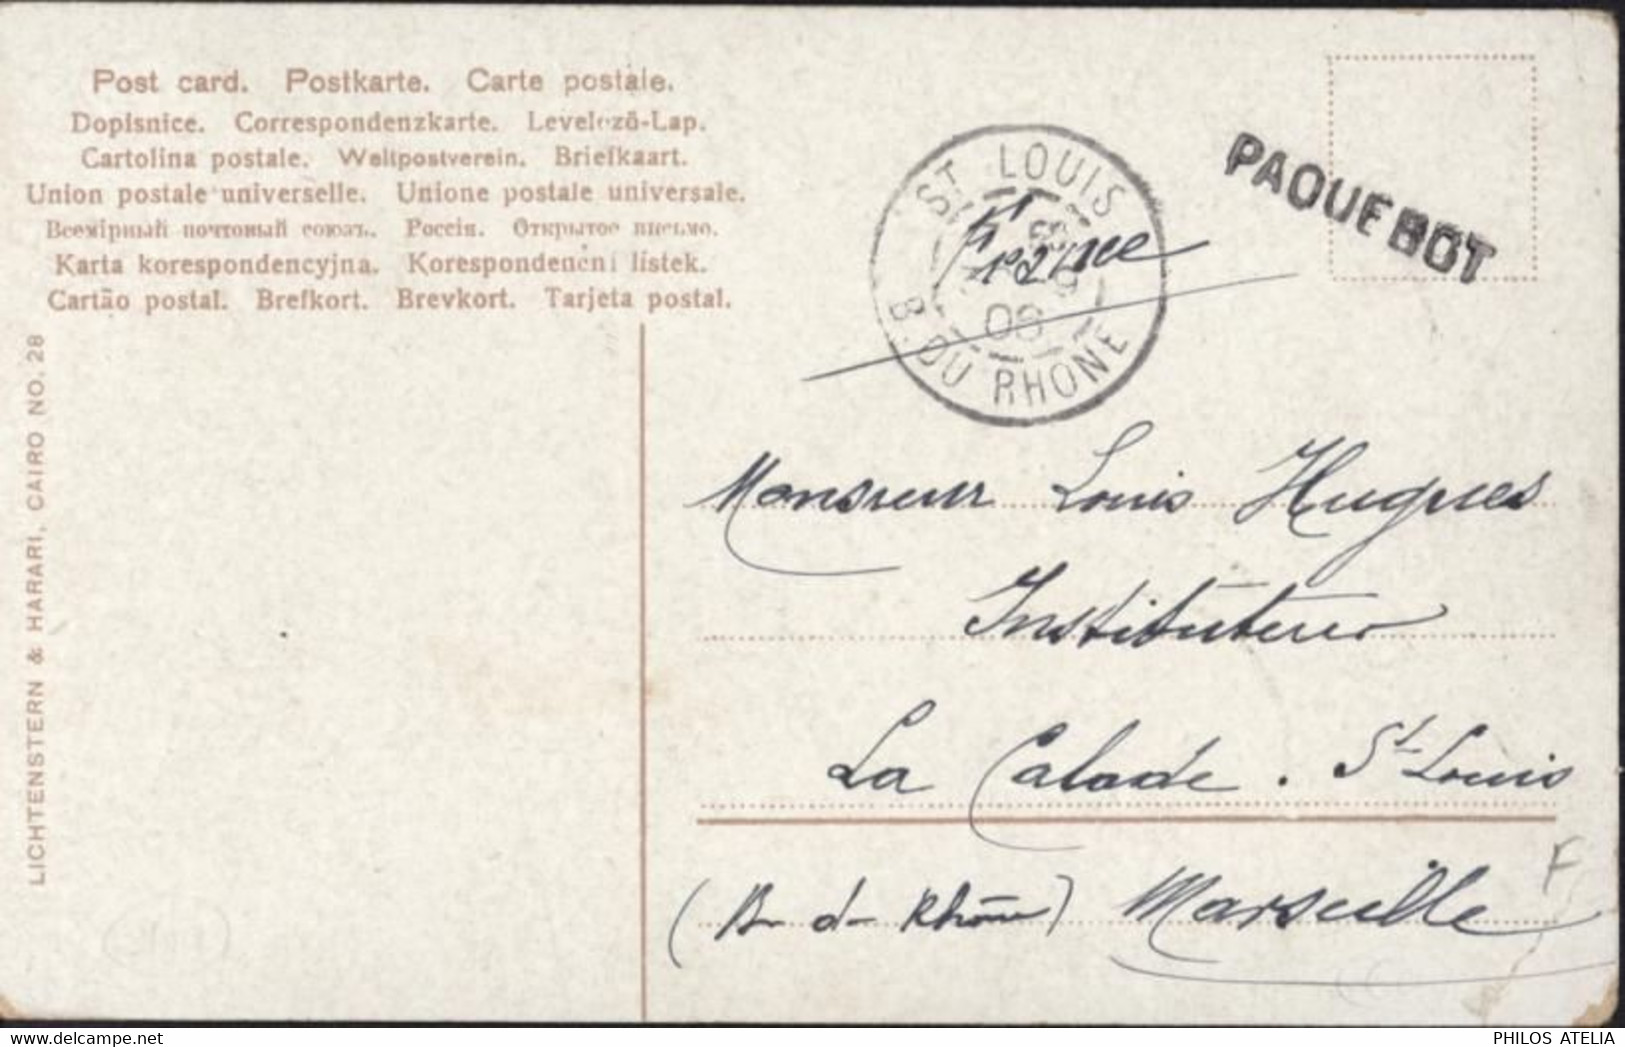 Post card. Postkarte. Carte postale.
Dopisnice. Correspondenzkarte. Levelező-Lap.
Cartolina postale. Weltpostverein. Briefkaart.
Union postale universelle. Unione postale universale.
Всемірный почтовый союзъ. Россія. Открытое письмо.
Karta korespondencyjna. Korespondenční lístek.
Cartão postal. Brefkort. Brevkort. Tarjeta postal.
LICHTENSTERN & HARARI, CAIRO NO. 28
ST LOUIS
B. DU RHONE
08
France
PAQUEBOT
Monsieur Louis Hugues
Instituteur
La Calade. St Louis
(B. d. Rhône) Marseille
F
PHILOS ATELIA